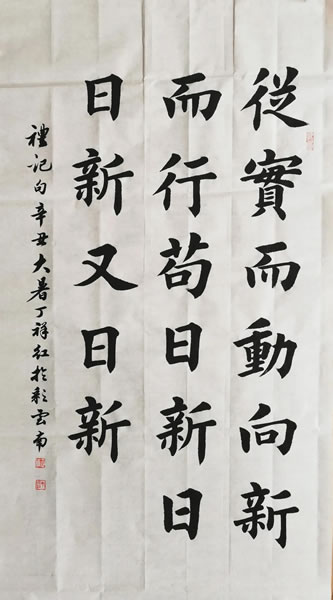 從實而動向新
而行苟日新日
日新又日新
禮記句辛丑大暑丁祥红於彩云南